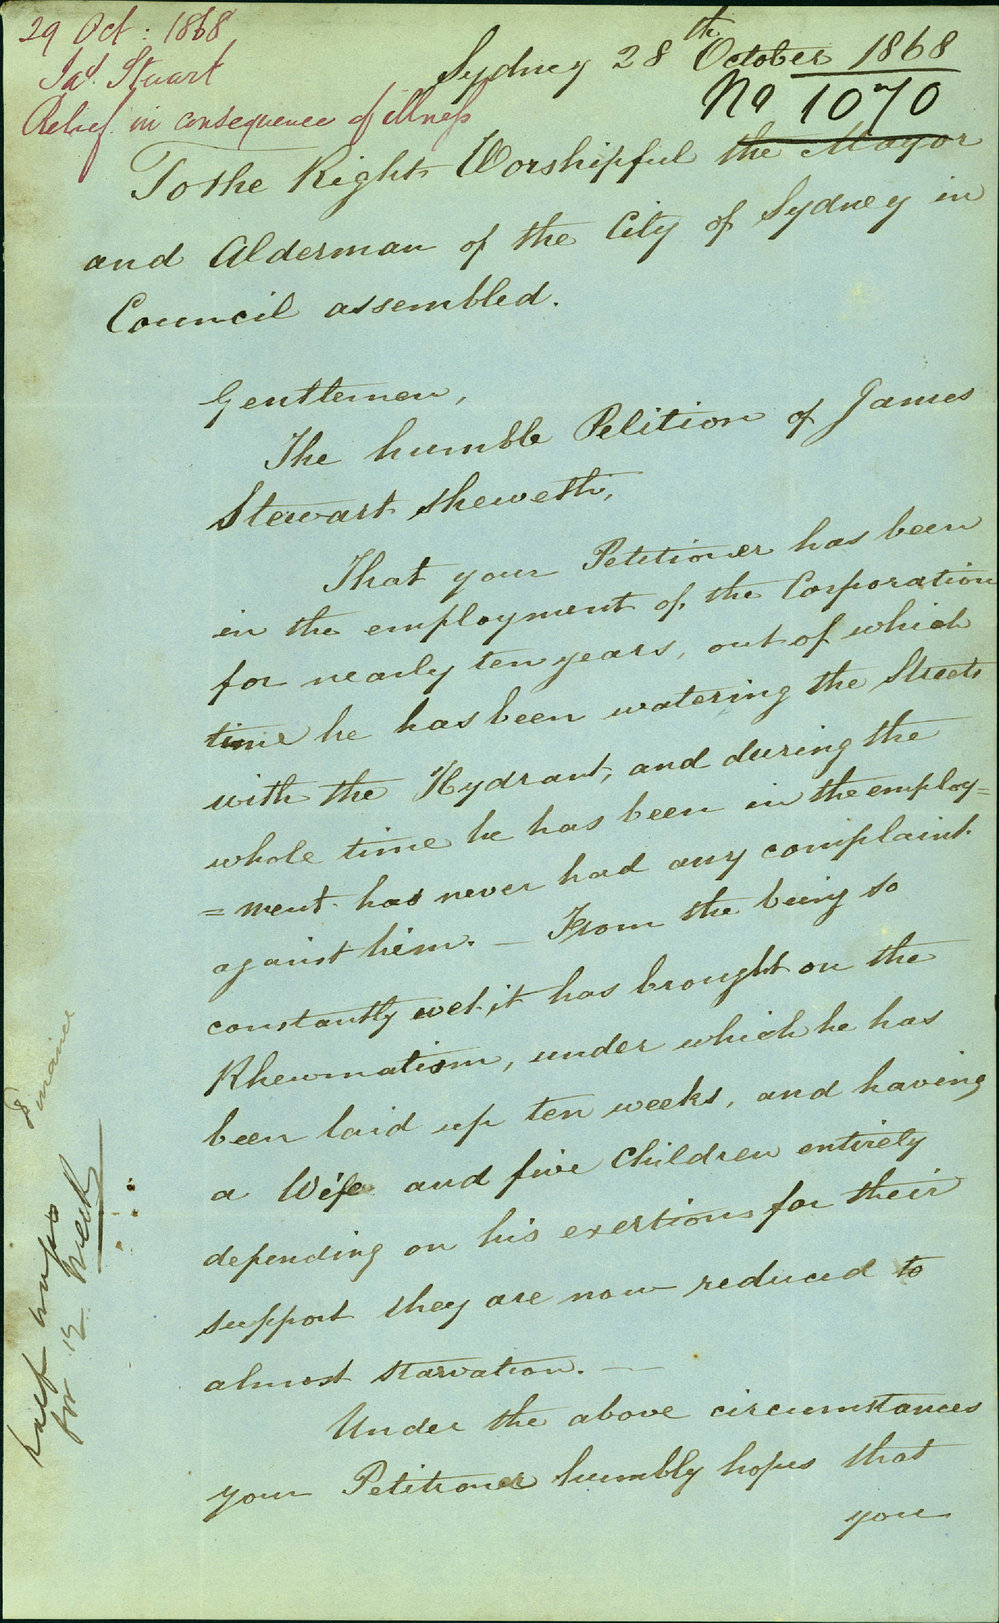 29 Oct: 1868
Jas. Stuart
Relief in consequence of illness
Sydney 28th October 1868
No 1070
To the Right Worshipful the Mayor
and Alderman of the City of Sydney in
Council assembled.
Gentlemen,
The humble Petition of James
Stewart sheweth,
That your Petitioner has been
in the employment of the Corporation
for nearly ten years, out of which
time he has been watering the Streets
with the Hydrant, and during the
whole time he has been in the employ=
=ment has never had any complaint
against him. — From the being so
constantly wet it has brought on the
Rheumatism, under which he has
been laid up ten weeks, and having
a Wife and five Children entirely
depending on his exertions for their
support they are now reduced to
almost starvation. —
Under the above circumstances
your Petitioner humbly hopes that
you
half wages
for 12 Weeks
Finance